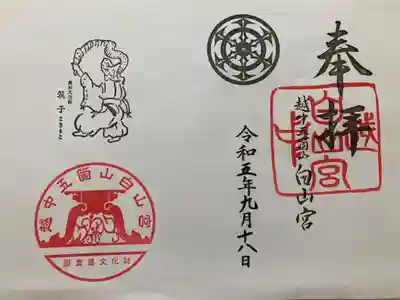 奉拝
越中五箇山
白山宮
令和五年九月十八日
筑子
こきりこ
越中五箇山白山宮
国重要文化財